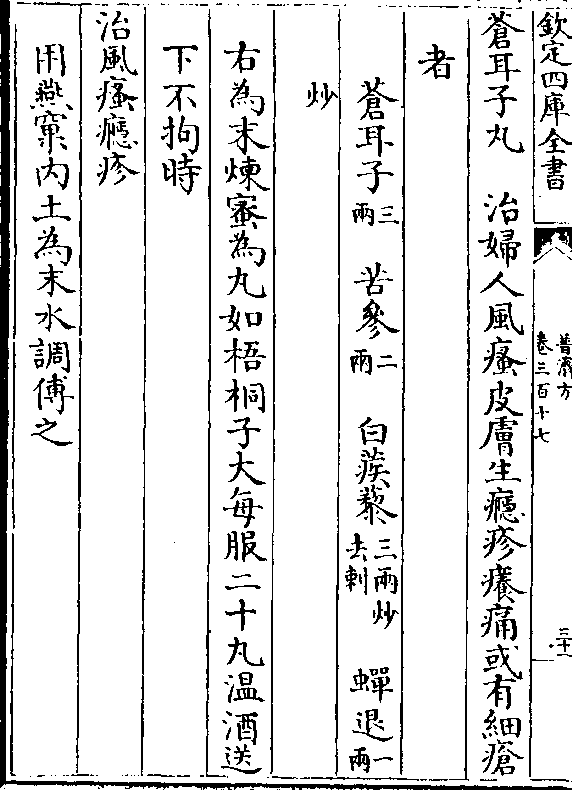 欽定四庫全書
普濟方
卷三百十七
三十一
蒼耳子丸　治婦人風瘙皮膚生癮疹癢痛或有細瘡
者
蒼耳子三兩　苦參二兩　白蒺藜三兩炒去刺　蟬退一兩
炒
右為末煉蜜為丸如梧桐子大每服二十丸温酒送
下不拘時
治風瘙癮疹
用燕窠内土為末水調傅之